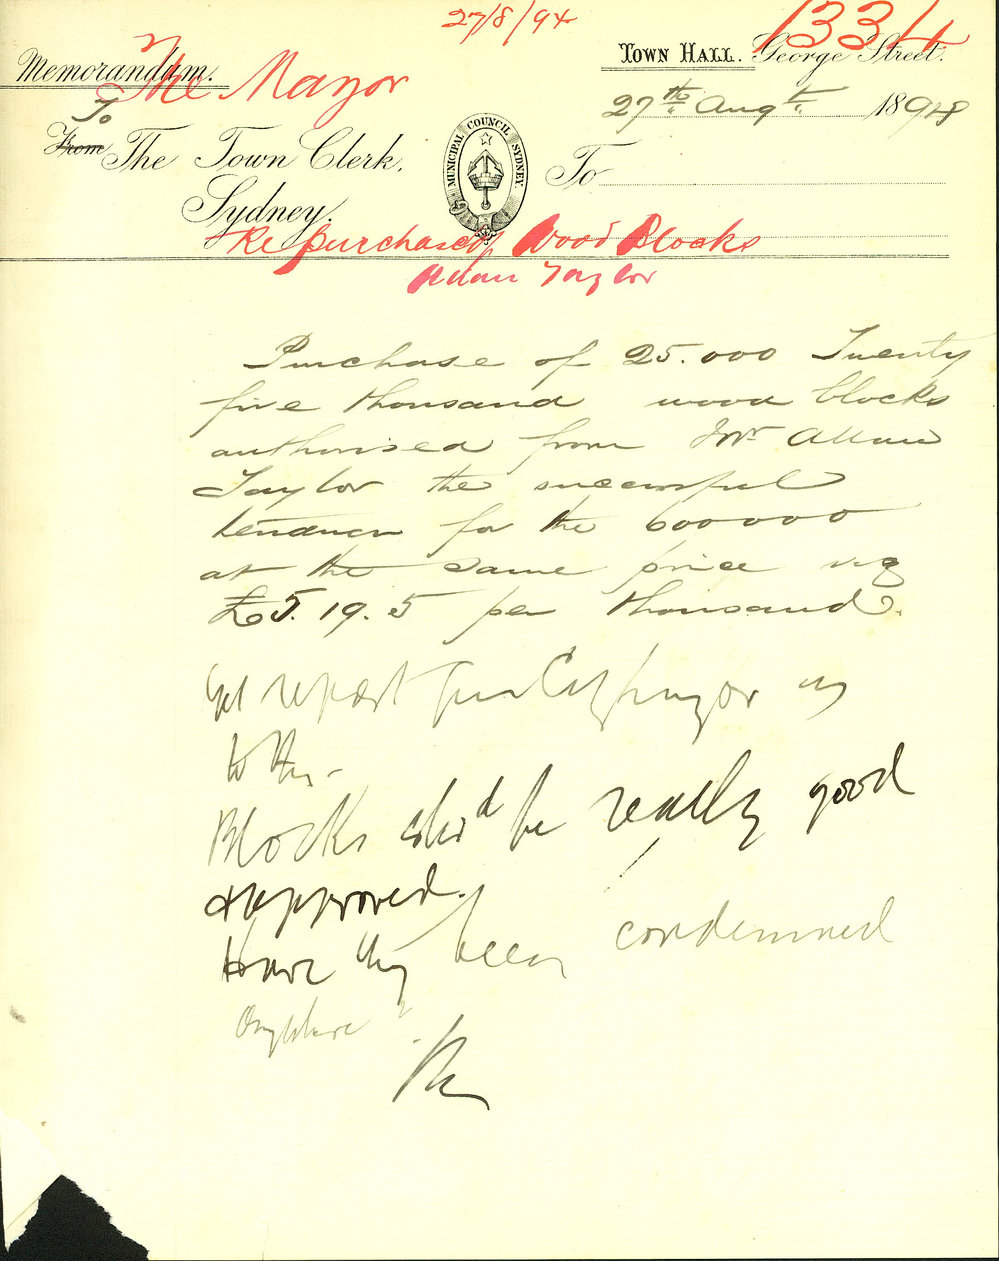 27/8/94
1334
The Mayor
Memorandum.
Town Hall. George Street.
27th Augt 1894
To
From The Town Clerk,
Sydney.
MUNICIPAL COUNCIL SYDNEY
To
Re purchase of Wood Blocks
Allan Taylor
Purchase of 25.000 Twenty
five thousand wood blocks
authorised from Mr Allan
Taylor the successful
tenderer for the 600000
at the same price viz
£5.19.5 per thousand.
Get report from City Surveyor as
to this -
Blocks shod be really good
& approved.
Have they been condemned
Anywhere ?